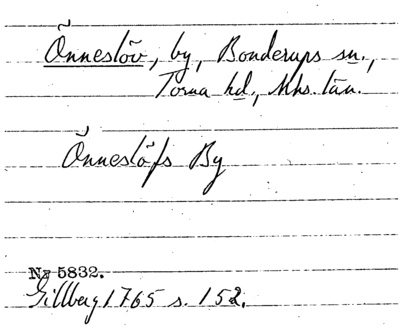 Önneslöv, by, Bonderups sn.,
Torna hd., Mhs. län.
Önneslöfs By
Nr 5832.
Gillberg 1765 s. 152.